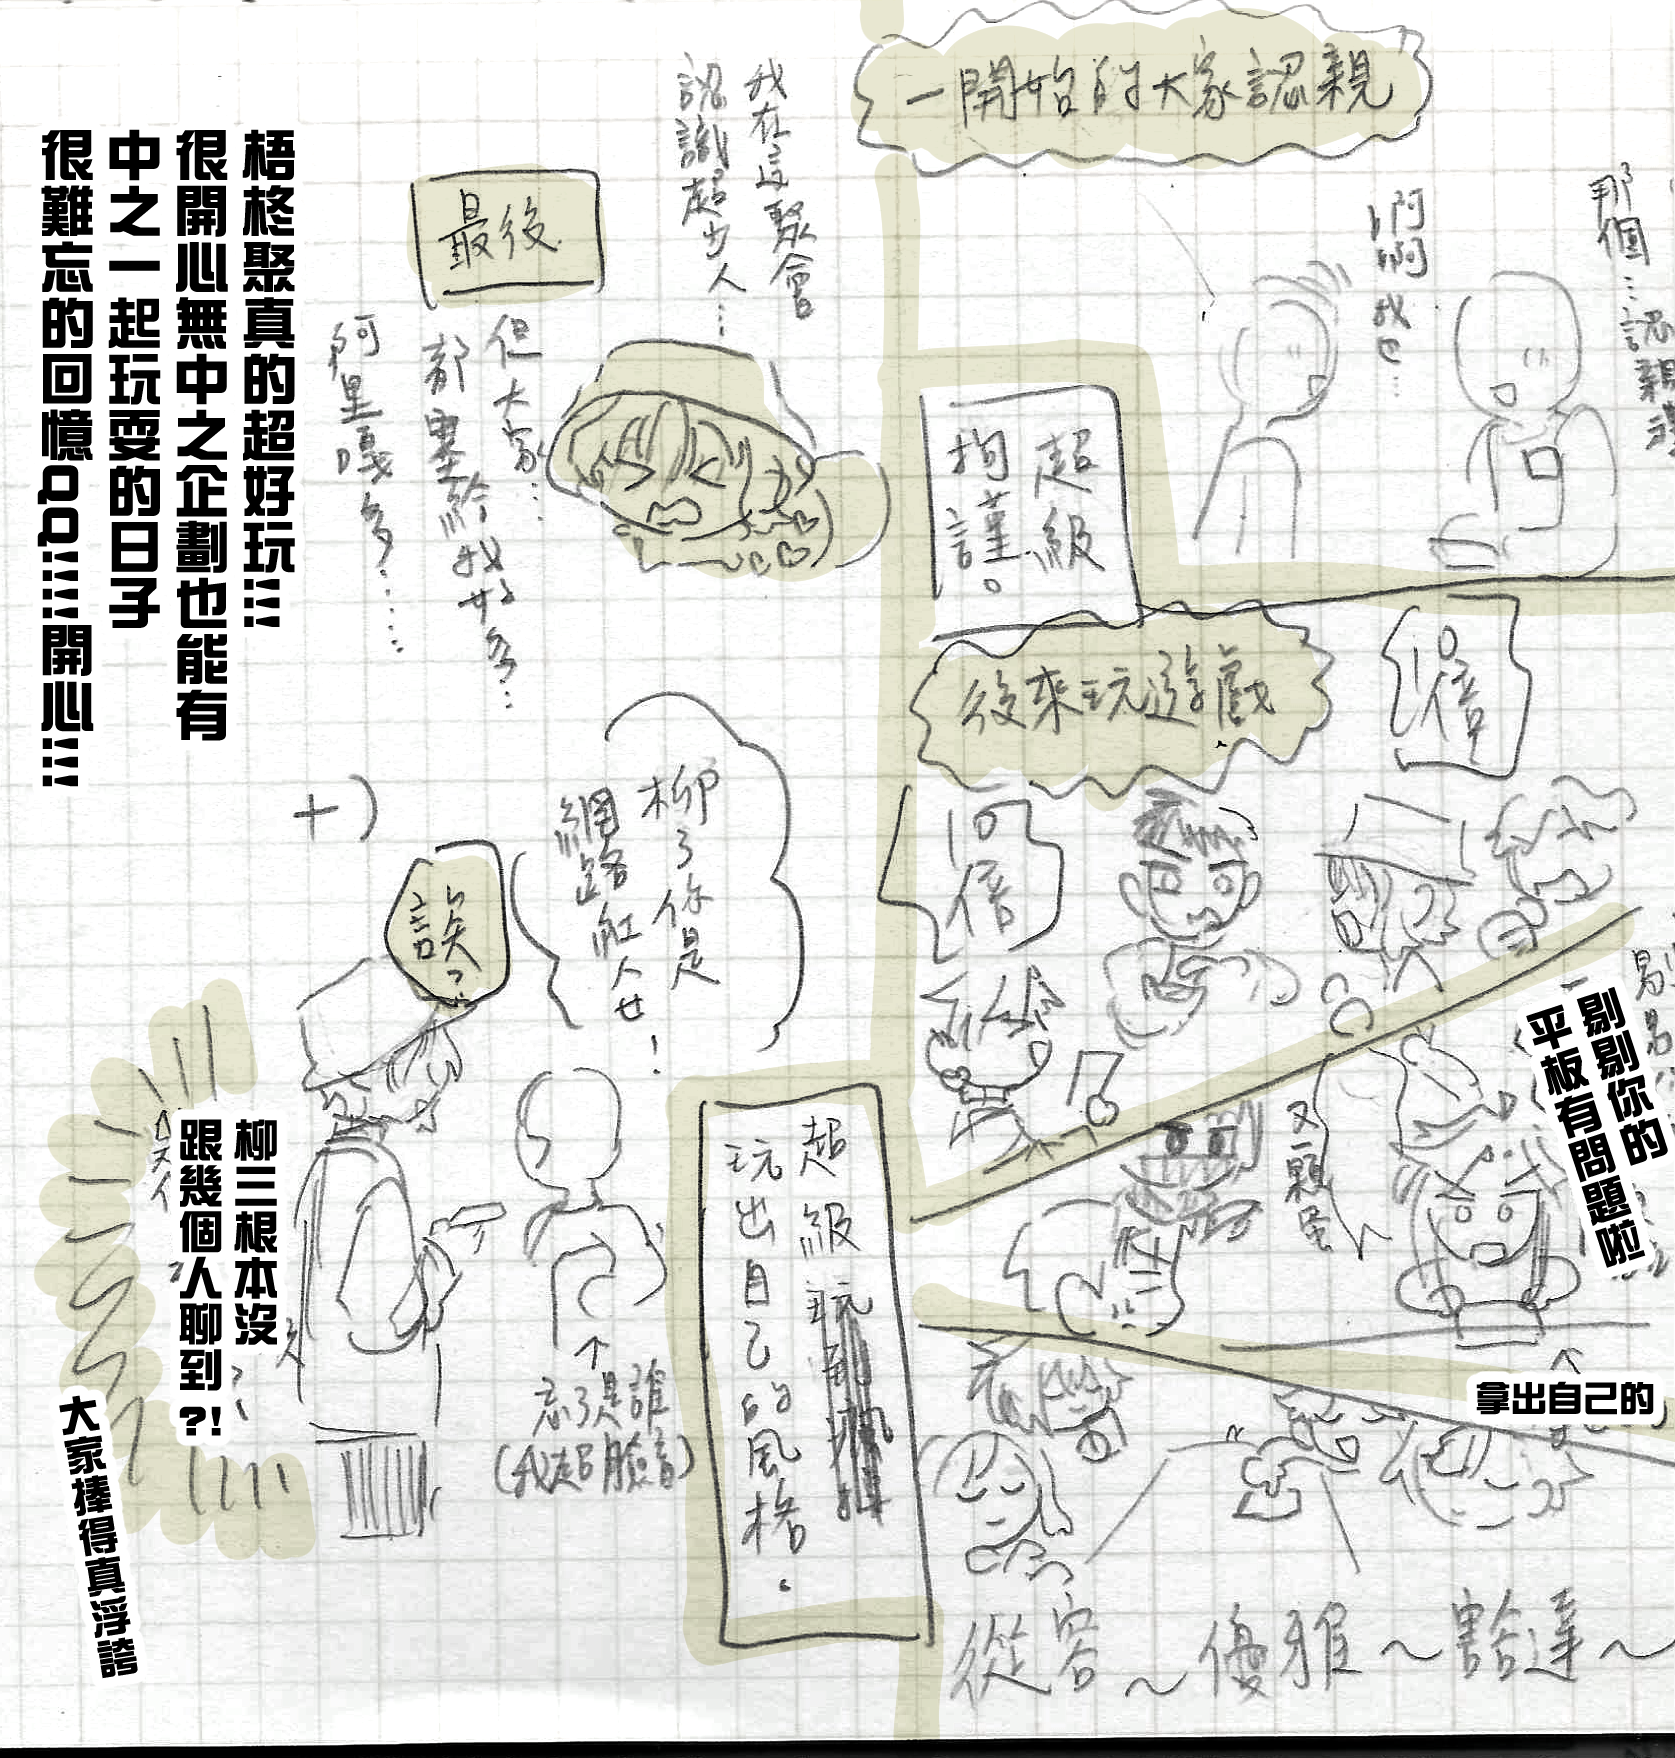 一開始的大家認親
那個…認親
啊啊 我也…
超級
拘謹。
後來玩遊戲
10倍
10倍
剔剔你的
平板有問題啦
又一顆蛋
拿出自己的
從容～優雅～豁達～
我在這聚會
認識超少人…
最後
但大家…
都塞給我好多…
阿里嘎多……
柳了你是
網路紅人せ!
誒?
忘了是誰
(我超臉盲)
超級
玩出自己的風格.
柳三根本沒
跟幾個人聊到?!
大家捧得真浮誇
梧柊聚真的超好玩!!!
很開心無中之企劃也能有
中之一起玩耍的日子
很難忘的回憶QQ!!!!開心!!!!